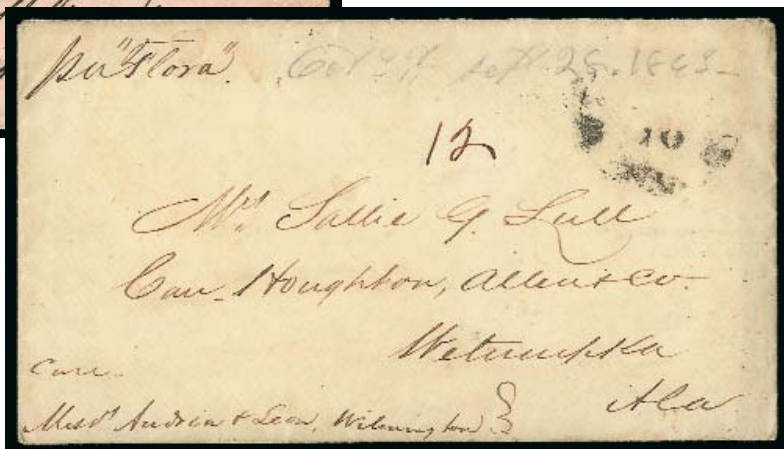 per "Flora".
Sept. 28. 1863
12
10
Mrs. Sallie G. Lull
Care Houghton, Allen & Co.
Wetumpka
Ala
Care
Messrs Andrea & Leon, Wilmington